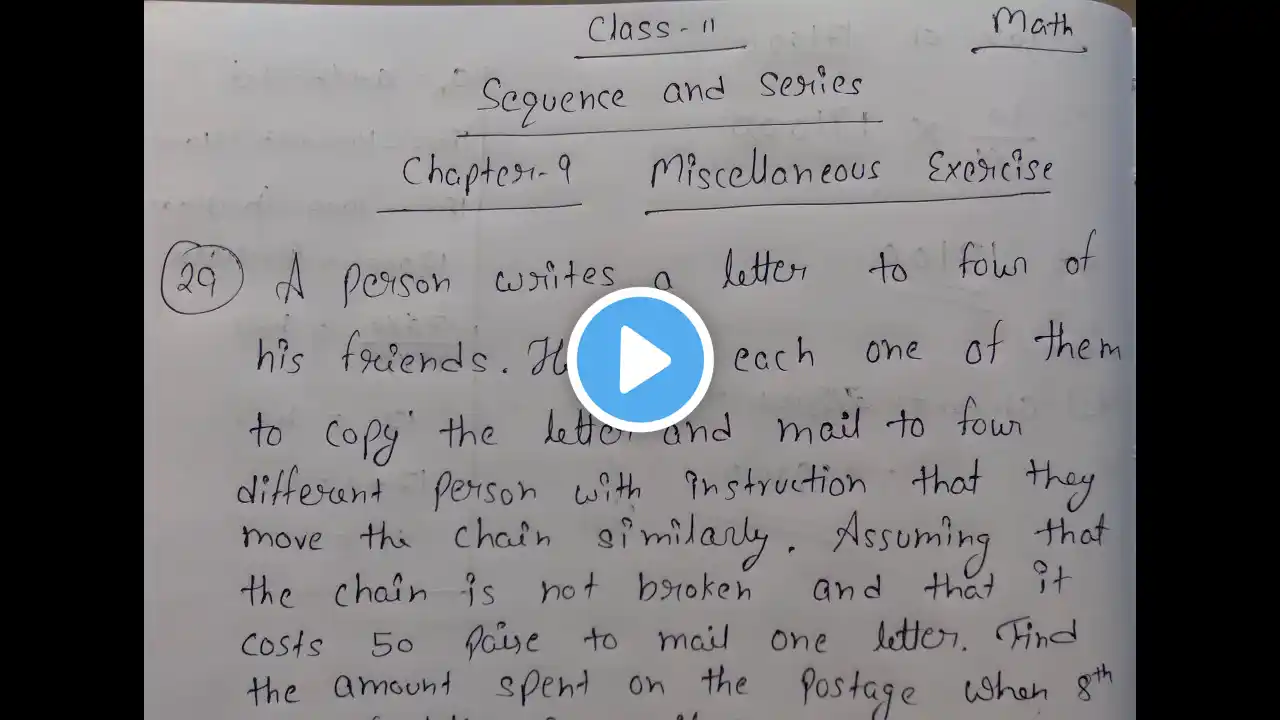 Class-11 Math
Sequence and series
Chapter-9 Miscellaneous Exercise
29 A person writes a letter to four of
his friends. each one of them
to copy the letter and mail to four
different person with instruction that they
move the chain similarly. Assuming that
the chain is not broken and that it
costs 50 paise to mail one letter. Find
the amount spent on the postage when 8th